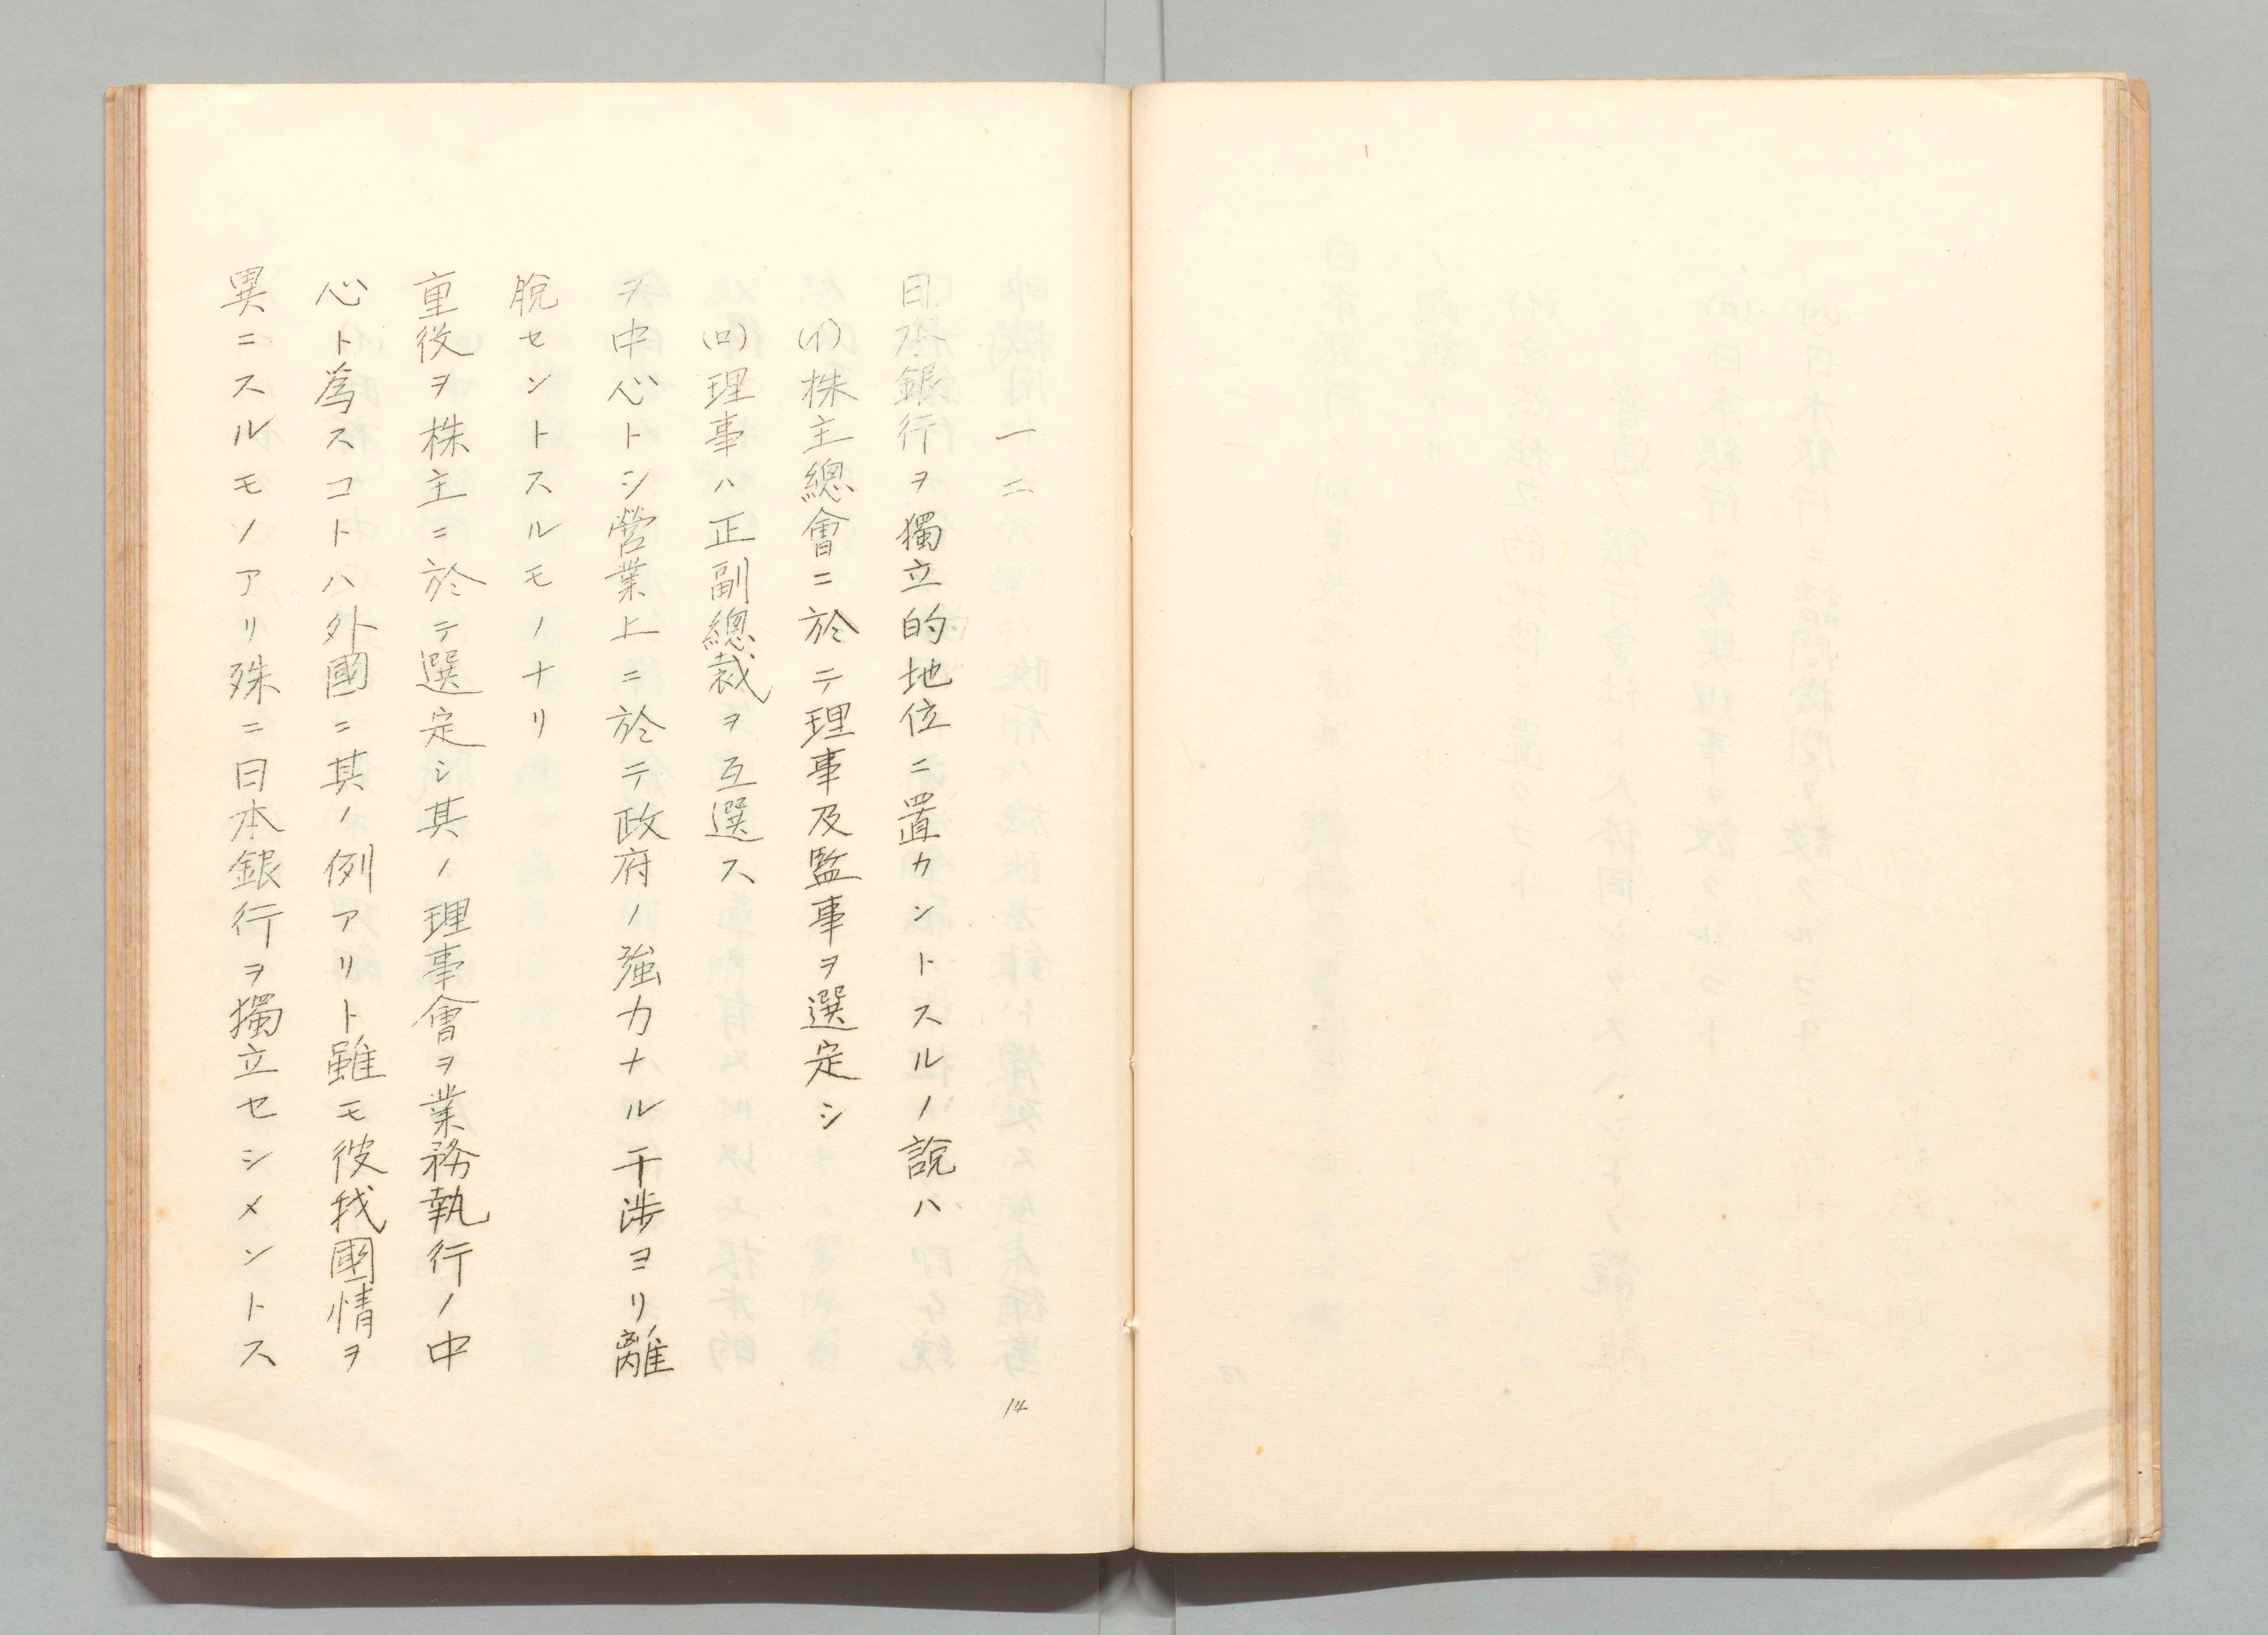 一二
日本銀行ヲ獨立的地位ニ置カントスルノ說ハ
(イ)株主總會ニ於テ理事及監事ヲ選定シ
(ロ)理事ハ正副總裁ヲ互選ス
ヲ中心トシ營業上ニ於テ政府ノ強力ナル干渉ヨリ離
脫セントスルモノナリ
重役ヲ株主ニ於テ選定シ其ノ理事會ヲ業務執行ノ中
心ト爲スコトハ外國ニ其ノ例アリト雖モ彼我國情ヲ
異ニスルモノアリ殊ニ日本銀行ヲ獨立セシメントス
14